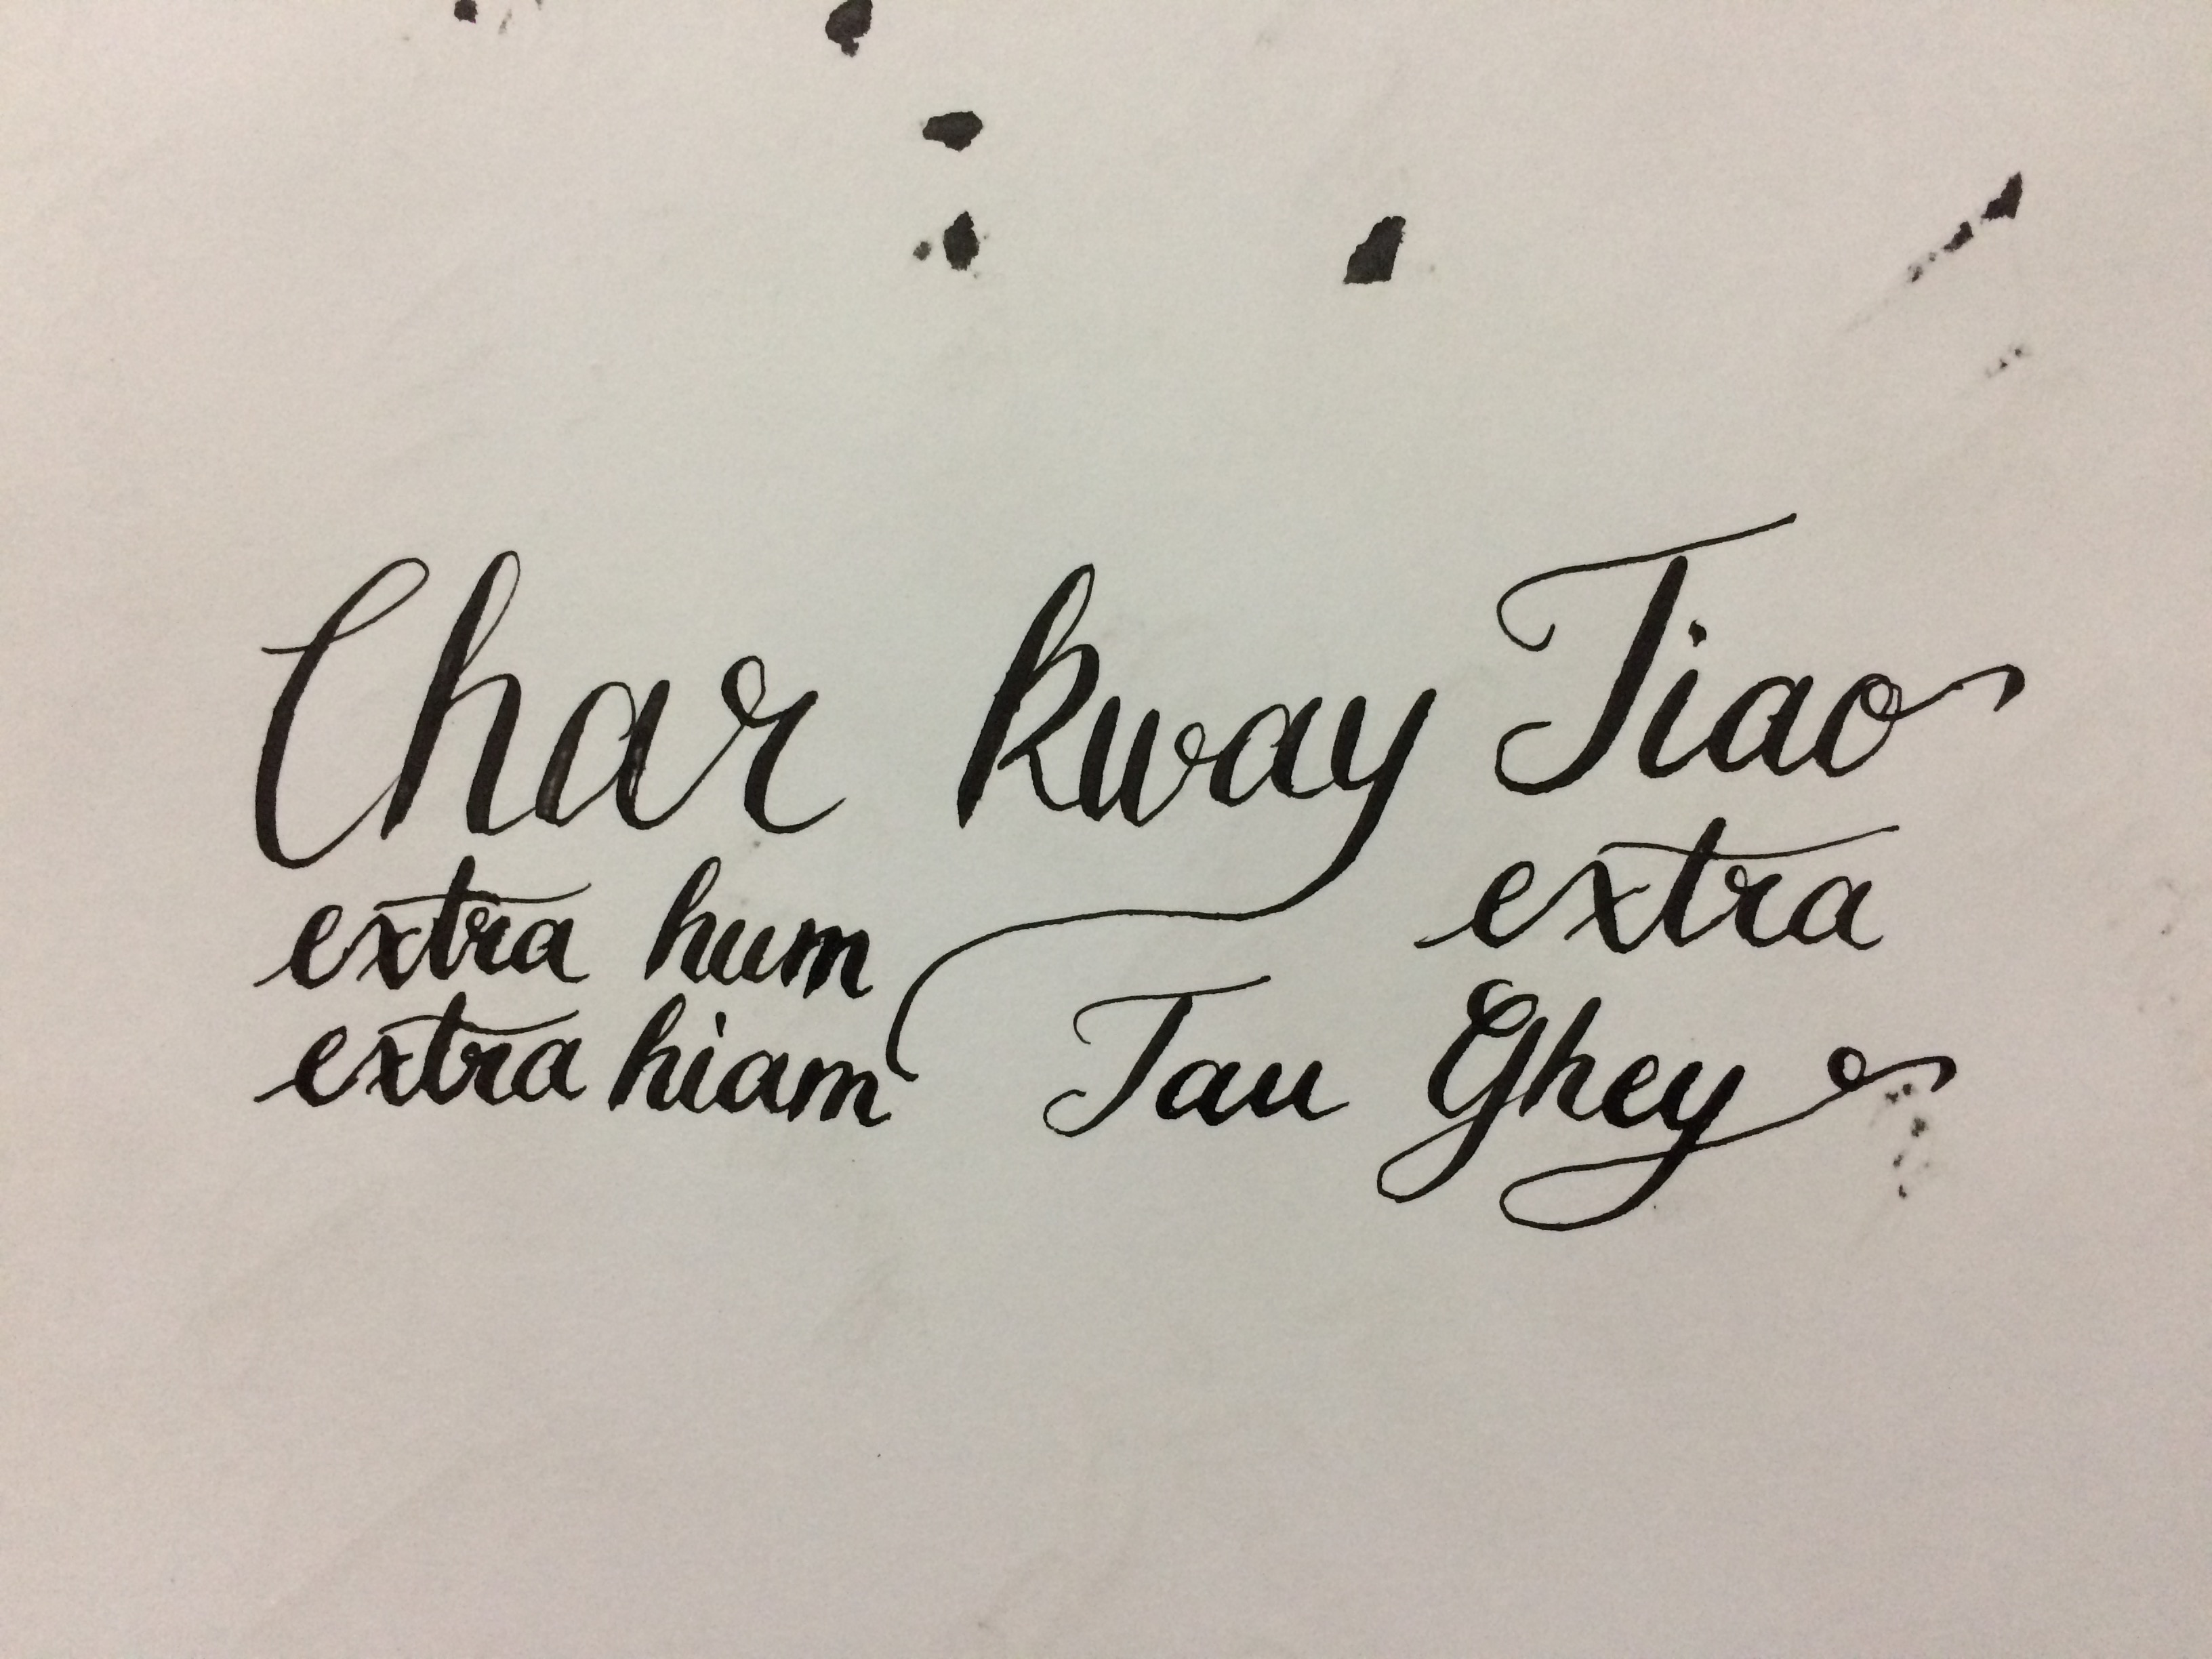 Char kway Tiao
extra hum
extra hiam
extra
Tau Ghey